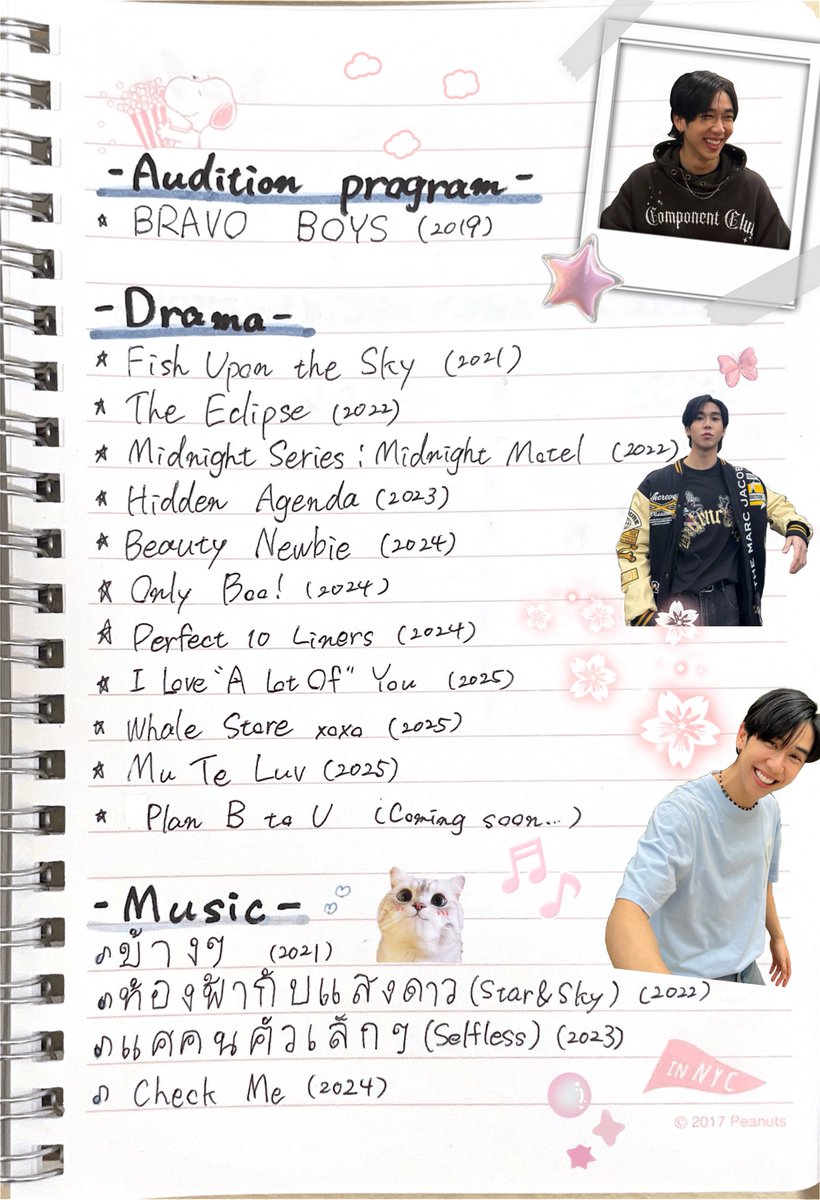 -Audition program-
☆ BRAVO BOYS (2019)
Component Clu
-Drama-
☆ Fish Upon the Sky (2021)
☆ The Eclipse (2022)
☆ Midnight Series : Midnight Motel (2022)
☆ Hidden Agenda (2023)
☆ Beauty Newbie (2024)
☆ Only Boo! (2024)
☆ Perfect 10 Liners (2024)
☆ I Love "A Lot Of" You (2025)
☆ Whale Store xoxo (2025)
☆ Mu Te Luv (2025)
☆ Plan B to U (Coming soon...)
THE MARC JACOB
-Music-
♪ บ้างๆ (2021)
♪ ห้องฟ้ากับแสงดาว (Star&Sky) (2022)
♪ แศคนตัวเล็กๆ (Selfless) (2023)
♪ Check Me (2024)
IN NYC
© 2017 Peanuts